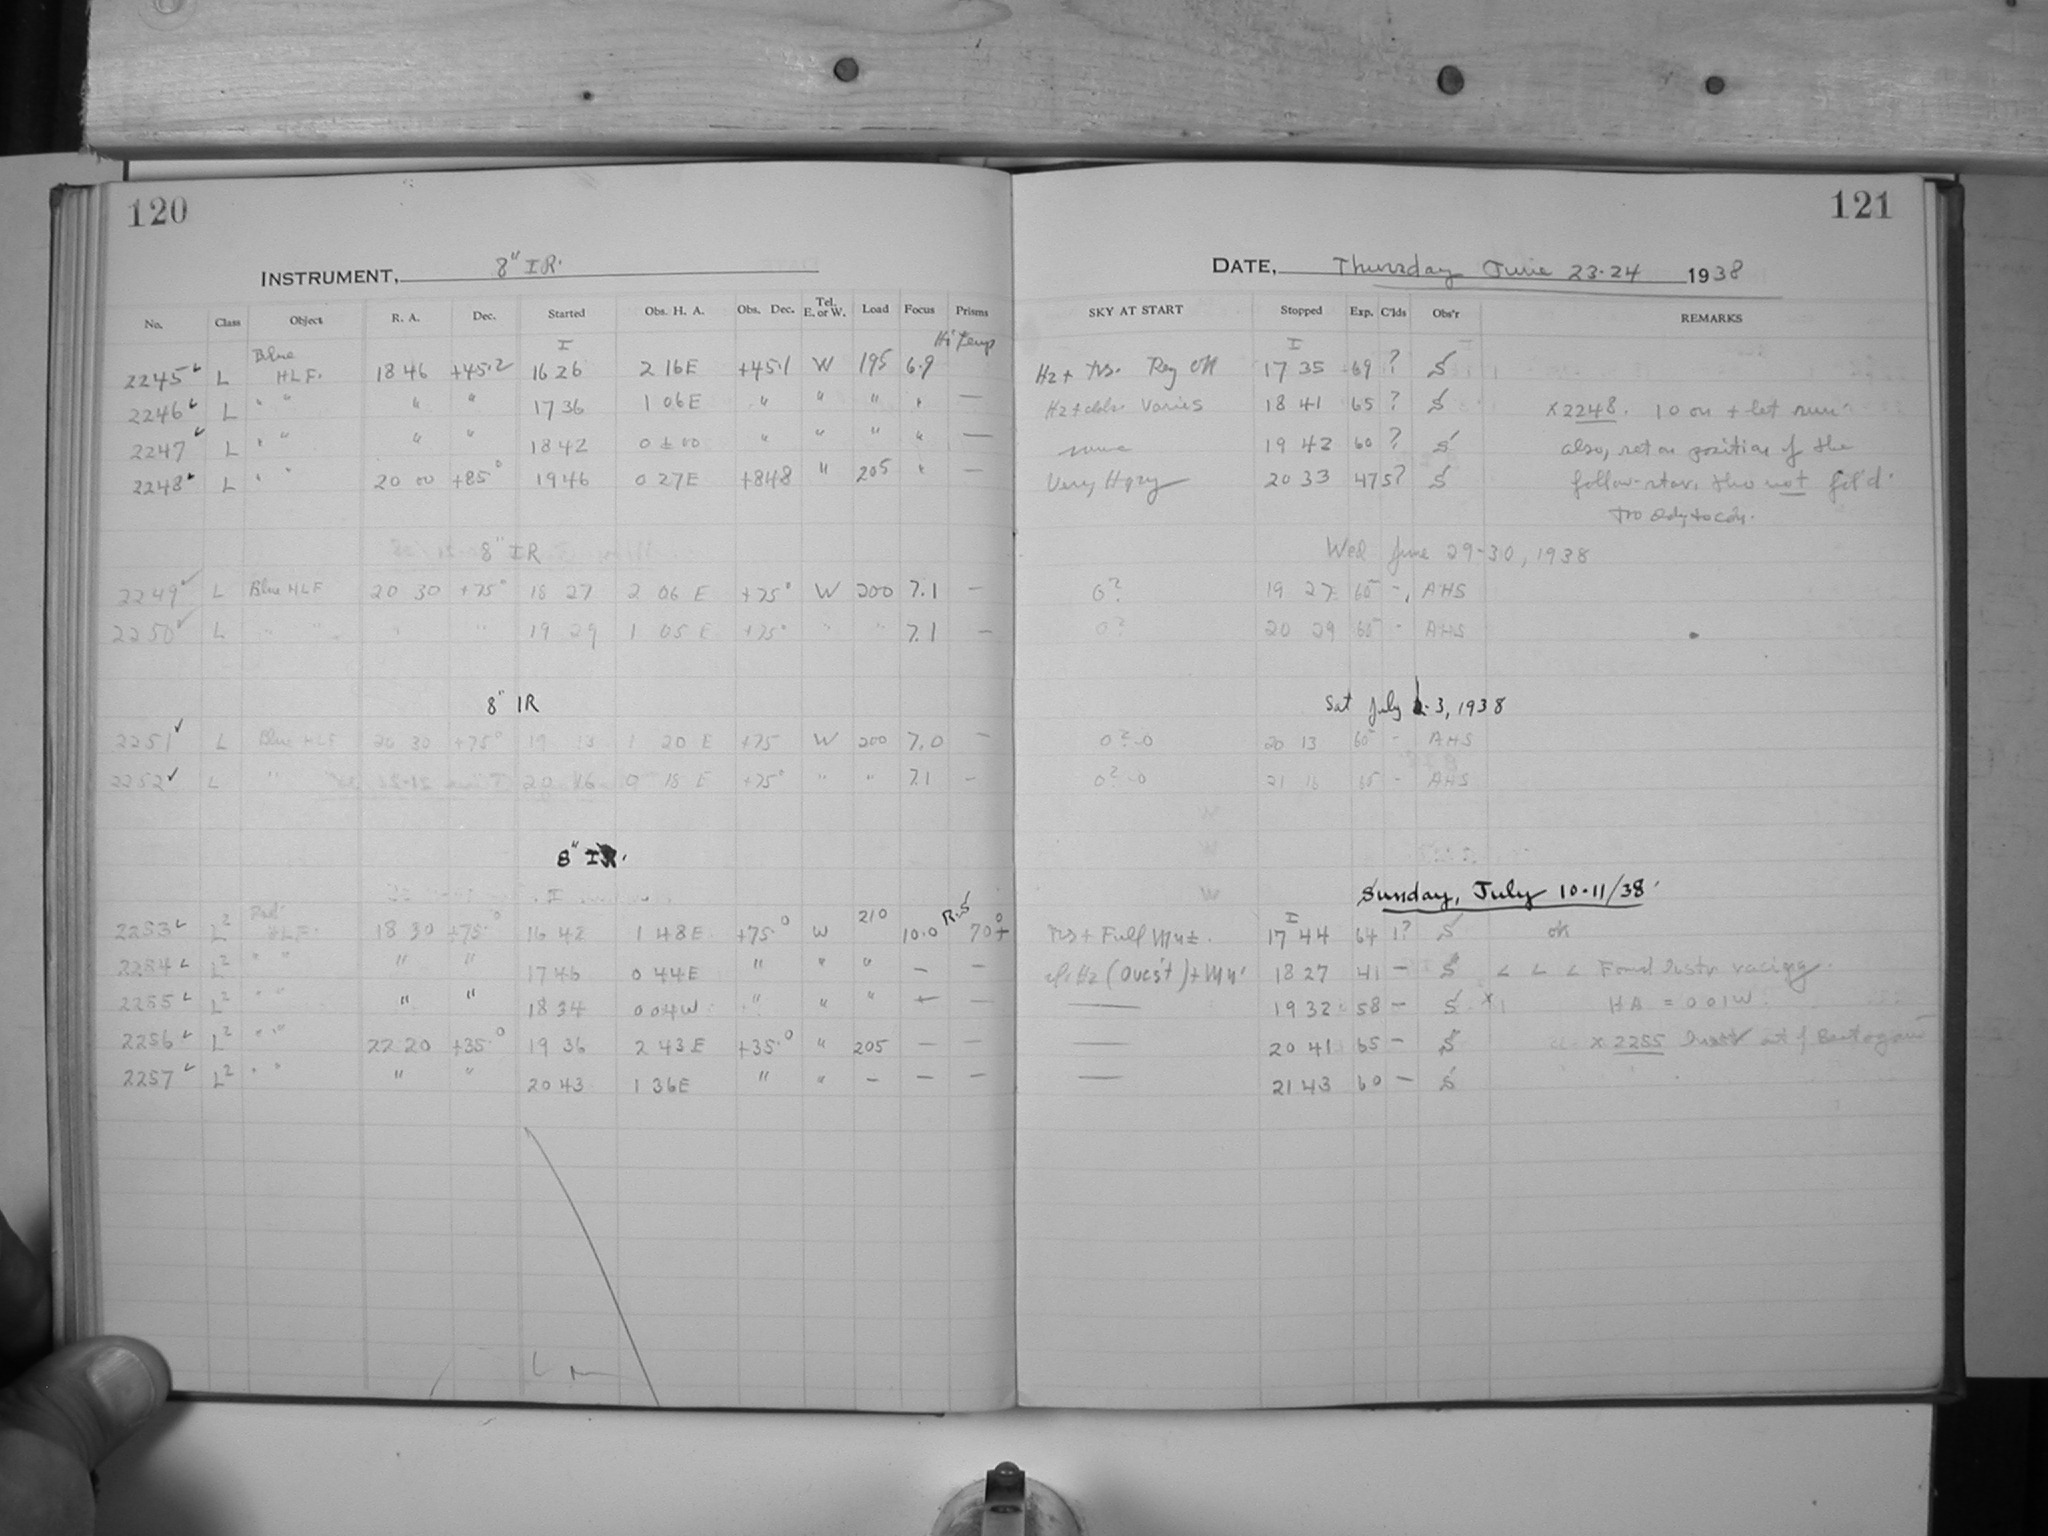 120
INSTRUMENT, 8" IR.
No. Class Object R. A. Dec. Started Obs. H. A. Obs. Dec. Tel. E. or W. Load Focus Prisms
2245 L Blue HLF. 18 46 +45.2 16 26 2 16E +45.1 W 195 6.9
2246 L " " " " 17 36 1 06E " " " " —
2247 L " " " " 18 42 0 ± 00 " " " " —
2248 L " " 20 00 +85° 19 46 0 27E +848 " 205 " —
8" IR
2249 L Blue HLF 20 30 +75° 18 27 2 06 E +75° W 200 7.1 —
2250 L " " " " 19 29 1 05 E +75° " " 7.1 —
8" IR
2251 L Blue HLF 20 30 +75° 19 13 1 20 E +75 W 200 7.0 —
2252 L " " 20 16 0 18 E +75° " " 7.1 —
8" IR.
2253 L² Red HLF. 18 30 +75.° 16 42 1 48E +75° W 210 10.0 70°+
2254 L² " " " " 17 46 0 44E " " " — —
2255 L² " " " " 18 34 0 04W " " " — —
2256 L² " " 22 20 +35.° 19 36 2 43E +35.° " 205 — —
2257 L² " " " " 20 43 1 36E " " — — —
121
DATE, Thursday June 23-24 1938
SKY AT START Stopped Exp. C'lds Obs'r REMARKS
17 35 69 ? S
Varies 18 41 65 ? S x 2248. 10 on + let run
same 19 42 60 ? S also, ret on position of the
Very Hazy 20 33 47 5? S follow-star, tho not fol'd.
Wed June 29-30, 1938
0? 19 27 60 - AHS
0? 20 29 60 - AHS
Sat July 2-3, 1938
0?-0 20 13 60 - AHS
0?-0 21 16 60 - AHS
Sunday, July 10-11/38.
+ Full Mn ±. 17 44 64 1? S ok
18 27 41 — S L L L Found Instr racing.
— 19 32 58 — S x HA = 0 01W.
— 20 41 65 — S x 2255
— 21 43 60 — S